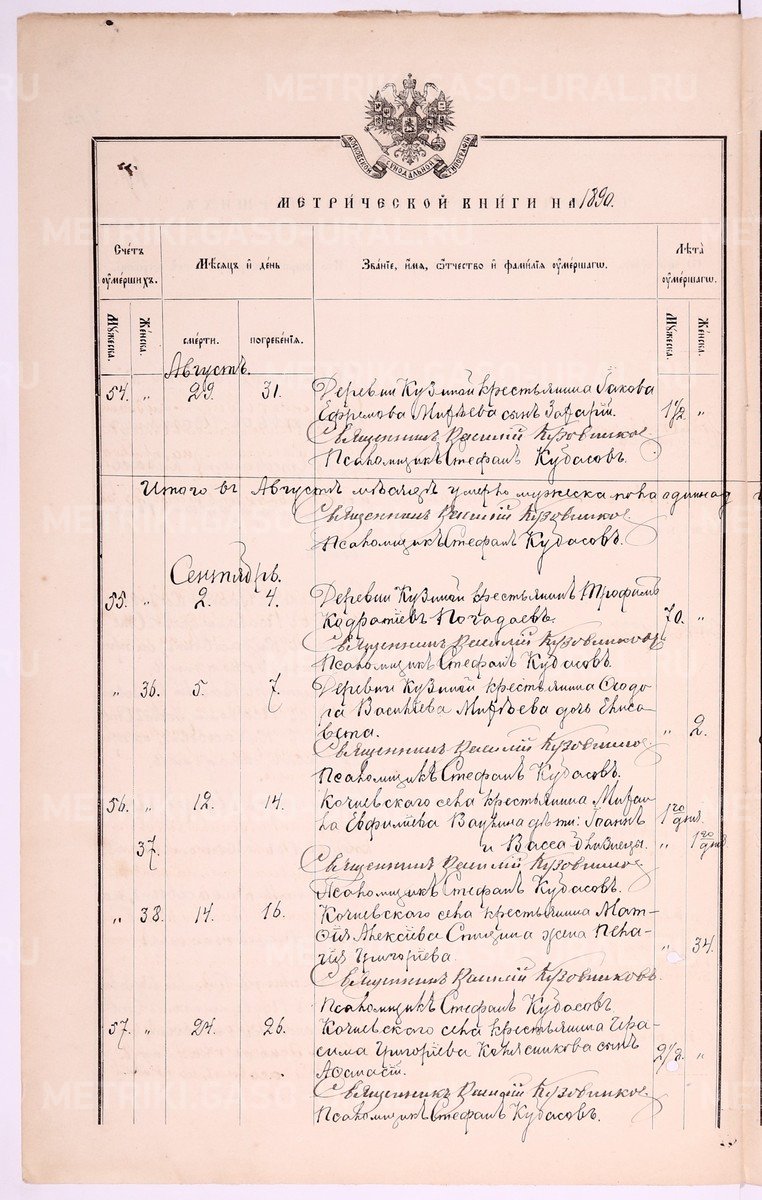 METRIKI.GASO-URAL.RU
МОСКОВСКОЙ СѴНОДАЛЬНОЙ ТИПОГРАФІИ
МЕТРИ́ЧЕСКОЙ КНИ́ГИ НА 1890.
Счётъ ᲂу҆ме́ршихъ.
Мѣ́сяцъ и҆ де́нь
Зва́нїе, и҆́мя, ѻ҆́тчество и҆ фами́лїя ᲂу҆ме́ршагѡ.
Лѣ́та ᲂу҆ме́ршагѡ.
Му́жеска.
Же́нска.
сме́рти.
погребе́нїя.
Му́жеска.
Же́нска.
Августъ.
54. „ 29. 31. Деревни Кузиной крестьянина Іакова
Ефремова сынъ Захарій. 1 1/2 „
Священникъ Василій Кузовников
Псаломщикъ Стефанъ Кубасовъ.
Итого въ Августѣ мѣсяцѣ умерло мужеска пола одиннад
Священникъ Василій Кузовников
Псаломщикъ Стефанъ Кубасовъ.
Сентябрь.
55. „ 2. 4. Деревни Кузиной крестьянинъ Трофимъ
Кодратіевъ 70. „
Священникъ Василій Кузовников
Псаломщикъ Стефанъ Кубасовъ.
„ 36. 5. 7. Деревни Кузиной крестьянина Ѳеодо-
ра Васильева дочь Елиса-
вета. „ 2.
Священникъ Василій Кузовников
Псаломщикъ Стефанъ Кубасовъ.
56. „ 12. 14. Кочневскаго села крестьянина Михаи-
ла дѣти: Іоаннъ 1го дня
37. и Васса близнецы. „ 1го дня
Священникъ Василій Кузовников
Псаломщикъ Стефанъ Кубасовъ.
„ 38. 14. 16. Кочневскаго села крестьянина Мат-
ѳія Алексіева жена Пела-
гія Григоріева. „ 34.
Священникъ Василій Кузовниковъ.
Псаломщикъ Стефанъ Кубасовъ
57. „ 24. 26. Кочневскаго села крестьянина Гера-
сима Григоріева сынъ
Аѳанасій. „
Священникъ Василій Кузовников
Псаломщикъ Стефанъ Кубасовъ.